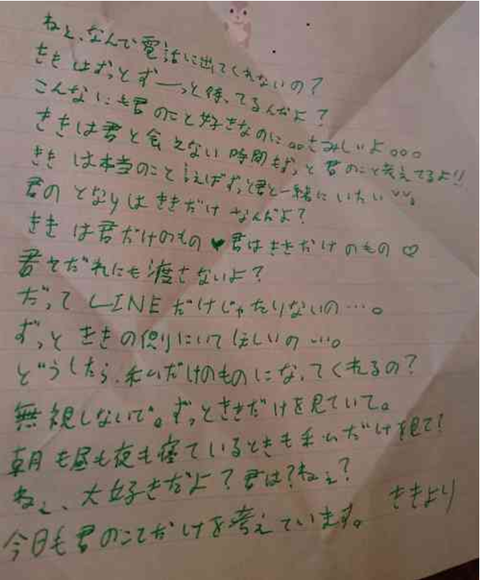 ねぇ、なんで電話に出てくれないの？
ききはずっとずーっと待ってるんだよ？
こんなにも君のこと好きなのに。。さみしいよ。。。
ききは君と会えない時間もずっと君のこと考えてるよ!!
ききは本当のこと言えばずっと君と一緒にいたい
君のとなりはききだけなんだよ？
ききは君だけのもの♥君はききだけのもの♡
君をだれにも渡さないよ？
だってLINEだけじゃたりないの…。
ずっとききの側にいてほしいの…。
どうしたら、私だけのものになってくれるの？
無視しないで。ずっとききだけを見ていて。
朝も昼も夜も寝ているときも私だけを見て？
ねぇ、大好きだよ？君は？ねぇ？
今日も君のことだけを考えています。 ききより